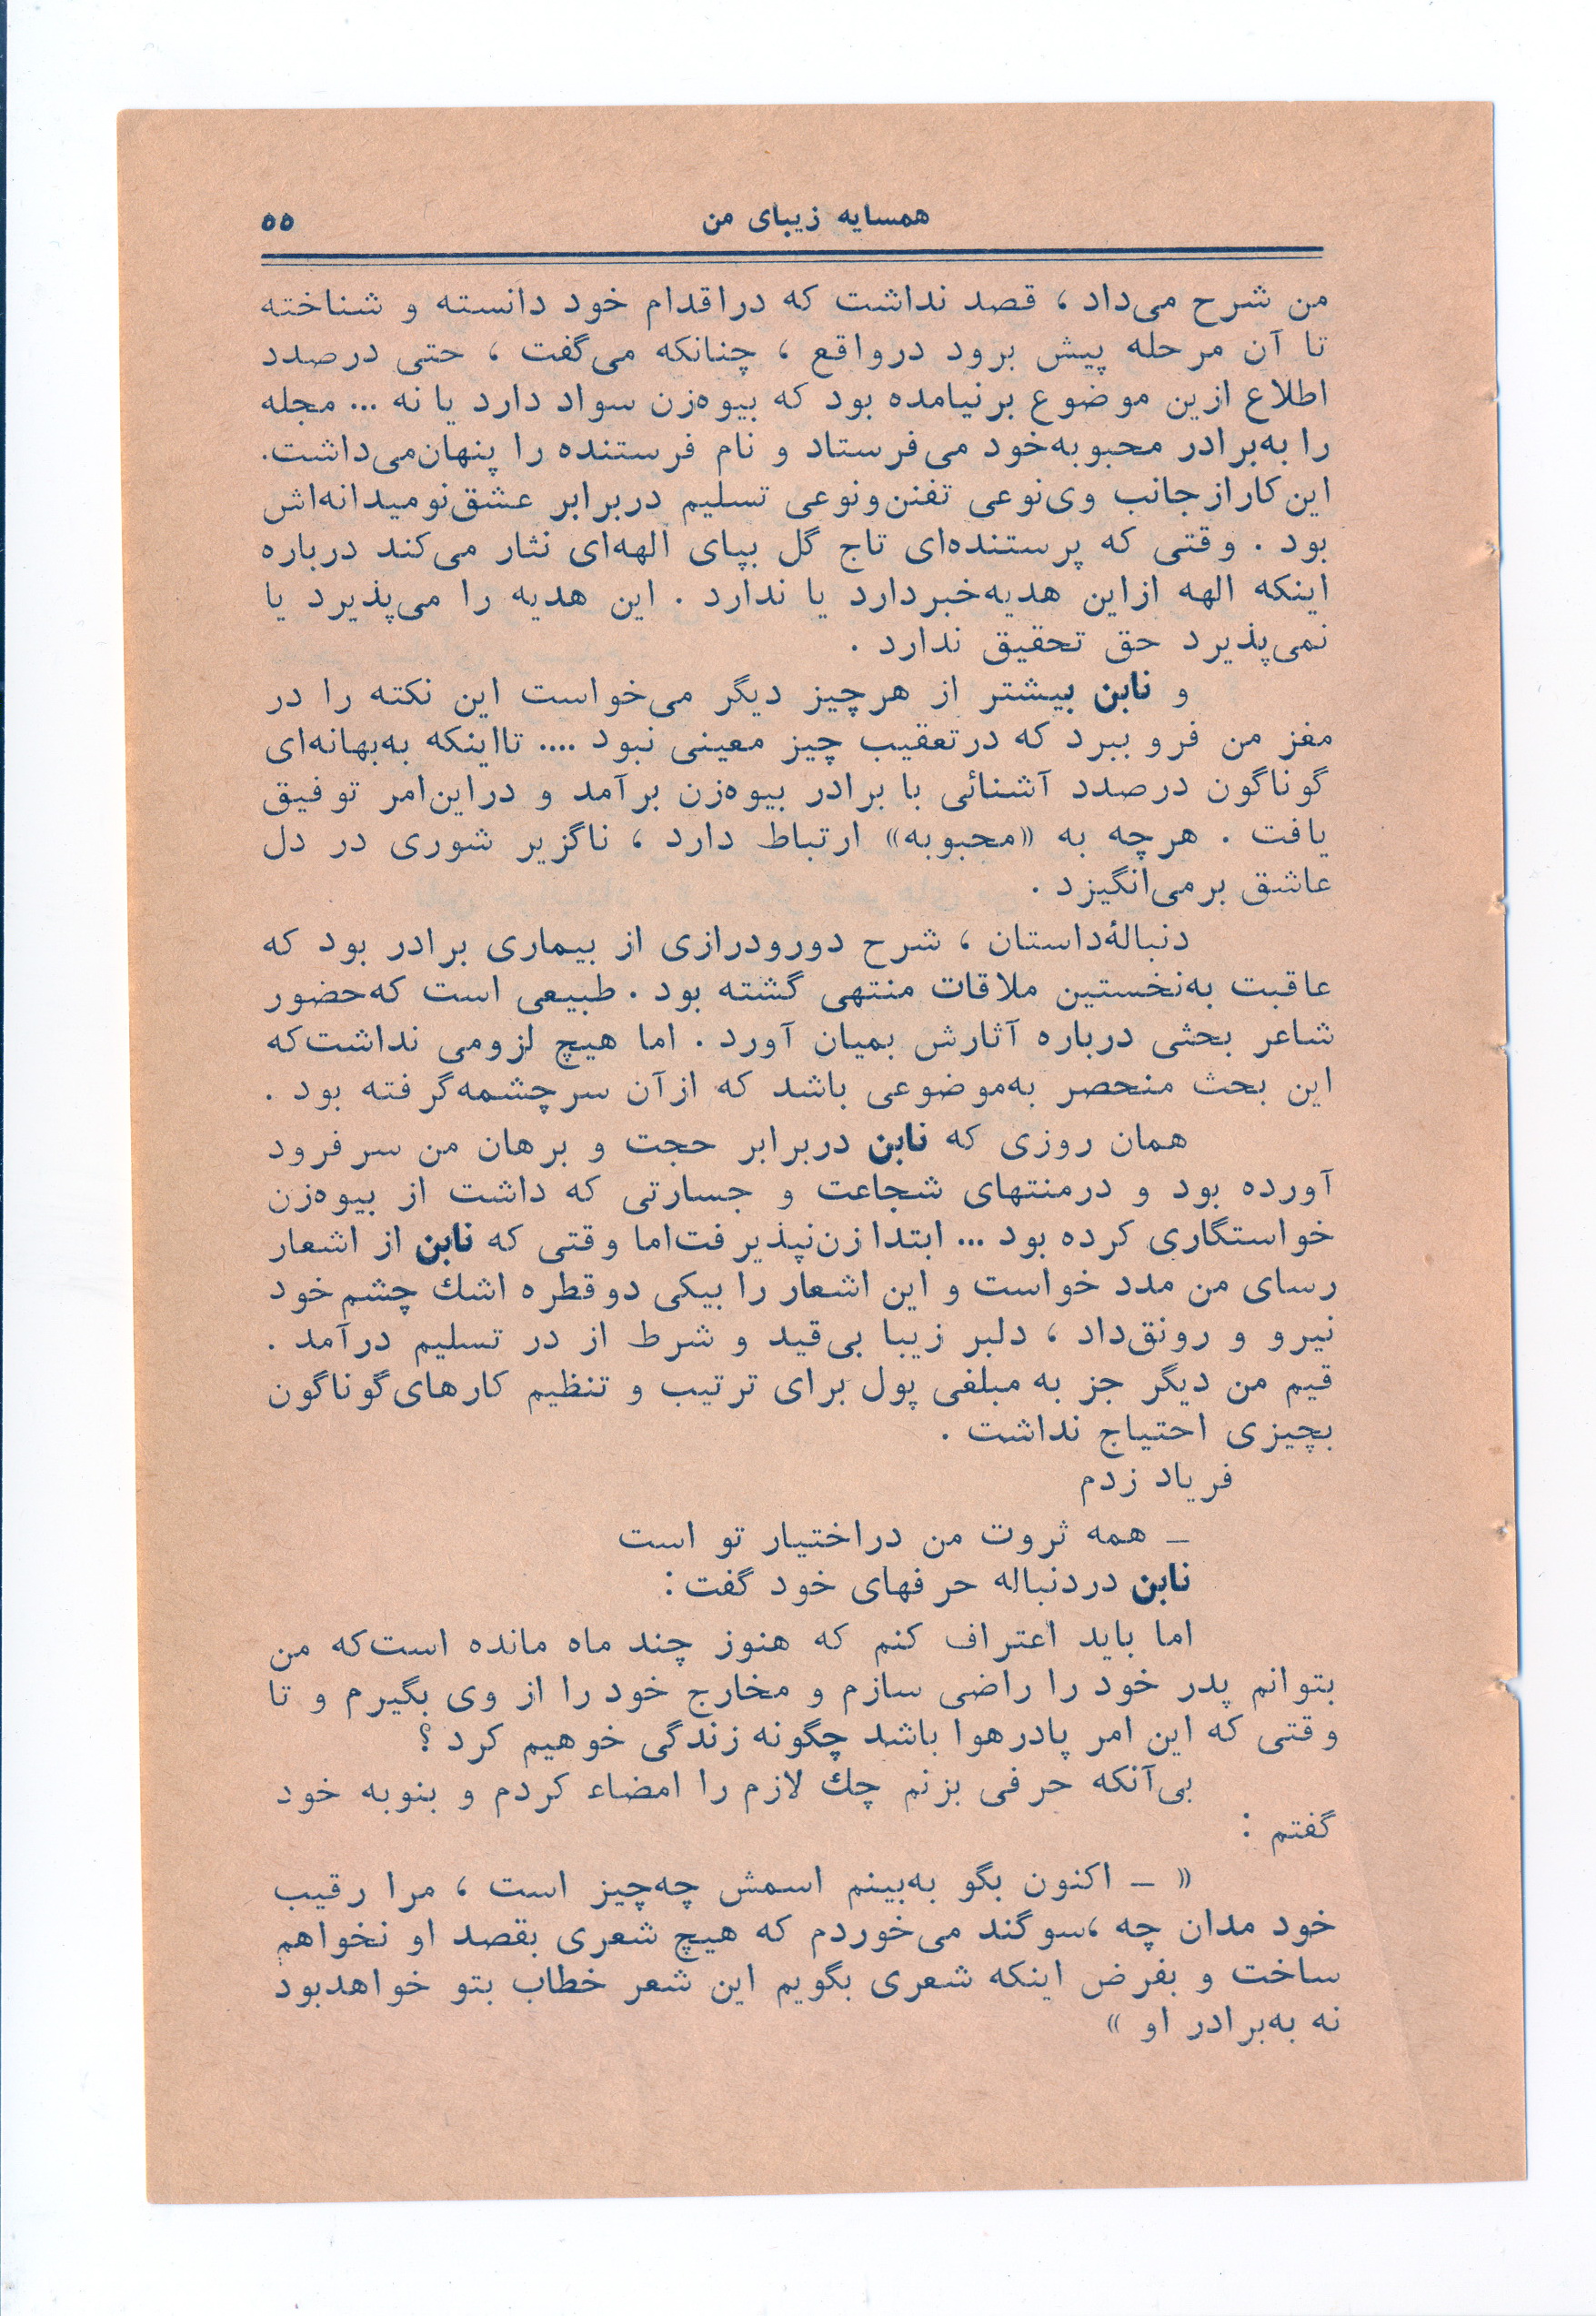 همسایه زیبای من
۵۵
من شرح می‌داد ، قصد نداشت که دراقدام خود دانسته و شناخته
تا آن مرحله پیش برود درواقع ، چنانکه می‌گفت ، حتی درصدد
اطلاع ازین موضوع برنیامده بود که بیوه‌زن سواد دارد یا نه ... مجله
را به‌برادر محبوبه‌خود می‌فرستاد و نام فرستنده را پنهان‌می‌داشت.
این‌کار از جانب وی‌نوعی تفنن‌ونوعی تسلیم دربرابر عشق‌نومیدانه‌اش
بود . وقتی که پرستنده‌ای تاج گل بپای الهه‌ای نثار می‌کند درباره
اینکه الهه ازاین هدیه‌خبردارد یا ندارد . این هدیه را می‌پذیرد یا
نمی‌پذیرد حق تحقیق ندارد .
و نابن بیشتر از هرچیز دیگر می‌خواست این نکته را در
مغز من فرو ببرد که درتعقیب چیز معینی نبود .... تااینکه به‌بهانه‌ای
گوناگون درصدد آشنائی با برادر بیوه‌زن برآمد و دراین‌امر توفیق
یافت . هرچه به «محبوبه» ارتباط دارد ، ناگزیر شوری در دل
عاشق برمی‌انگیزد .
دنبالهٔ‌داستان ، شرح دورودرازی از بیماری برادر بود که
عاقبت به‌نخستین ملاقات منتهی گشته بود . طبیعی است که‌حضور
شاعر بحثی درباره آثارش بمیان آورد . اما هیچ لزومی نداشت‌که
این بحث منحصر به‌موضوعی باشد که ازآن سرچشمه‌گرفته بود .
همان روزی که نابن دربرابر حجت و برهان من سرفرود
آورده بود و درمنتهای شجاعت و جسارتی که داشت از بیوه‌زن
خواستگاری کرده بود ... ابتدا زن‌نپذیرفت‌اما وقتی که نابن از اشعار
رسای من مدد خواست و این اشعار را بیکی دوقطره اشك چشم خود
نیرو و رونق‌داد ، دلبر زیبا بی‌قید و شرط از در تسلیم درآمد .
قیم من دیگر جز به مبلغی پول برای ترتیب و تنظیم کارهای‌گوناگون
بچیزی احتیاج نداشت .
فریاد زدم
ـ همه ثروت من دراختیار تو است
نابن دردنباله حرفهای خود گفت :
اما باید اعتراف کنم که هنوز چند ماه مانده است‌که من
بتوانم پدر خود را راضی سازم و مخارج خود را از وی بگیرم و تا
وقتی که این امر پادرهوا باشد چگونه زندگی خوهیم کرد ؟
بی‌آنکه حرفی بزنم چك لازم را امضاء کردم و بنوبه خود
گفتم :
« ـ اکنون بگو به‌بینم اسمش چه‌چیز است ، مرا رقیب
خود مدان چه ،سوگند می‌خوردم که هیچ شعری بقصد او نخواهم
ساخت و بفرض اینکه شعری بگویم این شعر خطاب بتو خواهدبود
نه به‌برادر او »